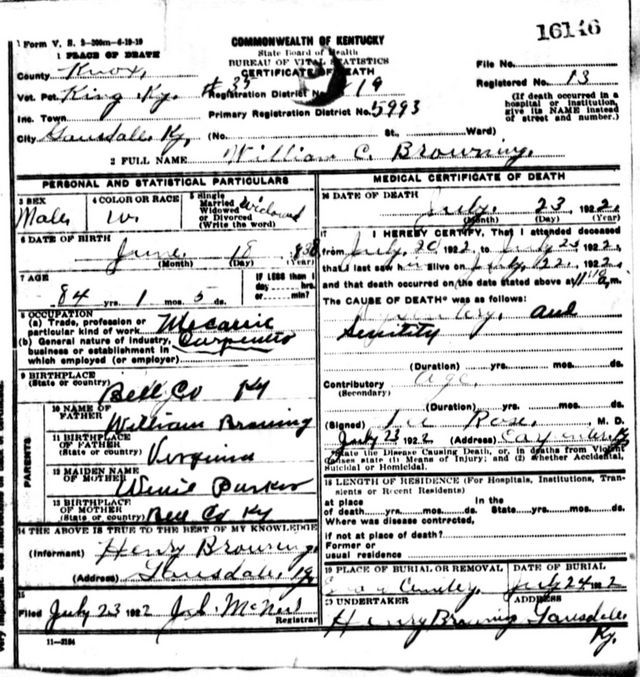 16146
Form V. S. 3-300m-6-19-19
COMMONWEALTH OF KENTUCKY
State Board of Health
BUREAU OF VITAL STATISTICS
CERTIFICATE OF DEATH
1 PLACE OF DEATH
County Knox
File No.
Vot. Pct. King Ky. # 35 Registration District No. 19
Registered No. 13
Inc. Town
Primary Registration District No. 5993
(If death occurred in a hospital or institution, give its NAME instead of street and number.)
City Ky. (No. St., Ward)
2 FULL NAME William C. Browning.
PERSONAL AND STATISTICAL PARTICULARS
3 SEX
Male
4 COLOR OR RACE
W.
5 Single
Married
Widowed
or Divorced
(Write the word)
Widowed
6 DATE OF BIRTH
June 18, 1838
(Month) (Day)
7 AGE
84 yrs. 1 mos. 5 ds.
IF LESS than 1 day hrs. or min.
8 OCCUPATION
(a) Trade, profession or particular kind of work
(b) General nature of industry, business or establishment in which employed (or employer)
9 BIRTHPLACE
(State or country)
Bell Co Ky
PARENTS
10 NAME OF FATHER
William
11 BIRTHPLACE OF FATHER
(State or country)
Virginia
12 MAIDEN NAME OF MOTHER
13 BIRTHPLACE OF MOTHER
(State or country)
Bell Co Ky
14 THE ABOVE IS TRUE TO THE BEST OF MY KNOWLEDGE
(Informant) Henry Browning.
(Address) Ky
15
Filed July 23 1922 McNeil
Registrar
11-3184
MEDICAL CERTIFICATE OF DEATH
16 DATE OF DEATH
July 23 1922
(Month) (Day) (Year)
17 I HEREBY CERTIFY, That I attended deceased
from July 20 1922 to July 23 1922,
that I last saw him alive on July 22 1922
and that death occurred on the date stated above at m.
The CAUSE OF DEATH* was as follows:
and
(Duration) yrs. mos. ds.
Contributory age
(Secondary)
(Duration) yrs. mos. ds.
(Signed) Rose, M. D.
July 23 1922 (Address)
State the Disease Causing Death, or, in deaths from Violent Causes state (1) Means of Injury; and (2) whether Accidental, Suicidal or Homicidal.
18 LENGTH OF RESIDENCE (For Hospitals, Institutions, Transients or Recent Residents)
at place of death yrs. mos. ds. In the State yrs. mos. ds.
Where was disease contracted,
if not at place of death?
Former or usual residence
19 PLACE OF BURIAL OR REMOVAL DATE OF BURIAL
July 24 1922
20 UNDERTAKER ADDRESS
Henry Browning
Ky.